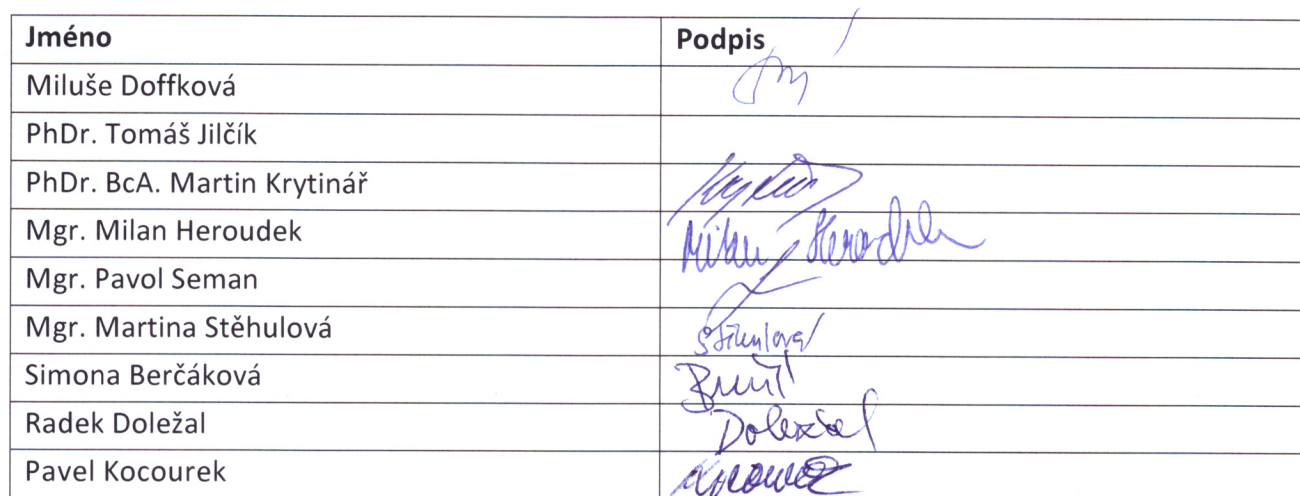 Jméno Podpis
Miluše Doffková
PhDr. Tomáš Jilčík
PhDr. BcA. Martin Krytinář
Mgr. Milan Heroudek Milan Heroudek
Mgr. Pavol Seman
Mgr. Martina Stěhulová Stěhulová
Simona Berčáková
Radek Doležal Doležal
Pavel Kocourek